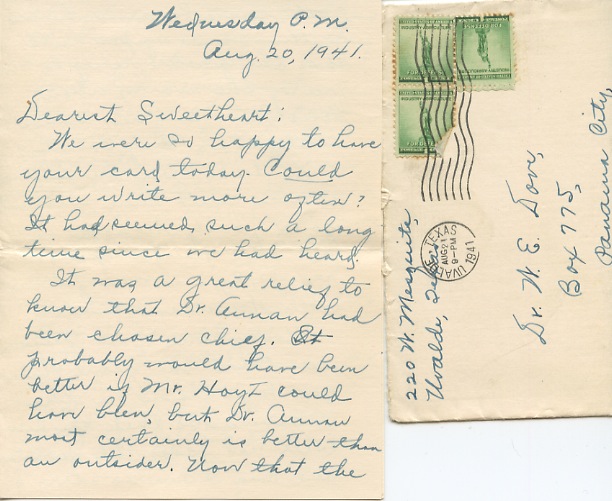 Wednesday P.M.
Aug. 20, 1941.
Dearest Sweetheart:
We were so happy to have
your card today. Could
you write more often?
It had seemed such a long
time since we had heard.
It was a great relief to
know that Dr. Annan had
been chosen chief. It
probably would have been
better if Mr. Hoyt could
have been, but Dr. Annan
most certainly is better than
an outsider. Now that the
UVALDE, TEXAS
AUG 21
9-PM
1941
220 W. Mesquite,
Uvalde, Texas
Dr. W. E. Dove,
Box 775,
Panama City,